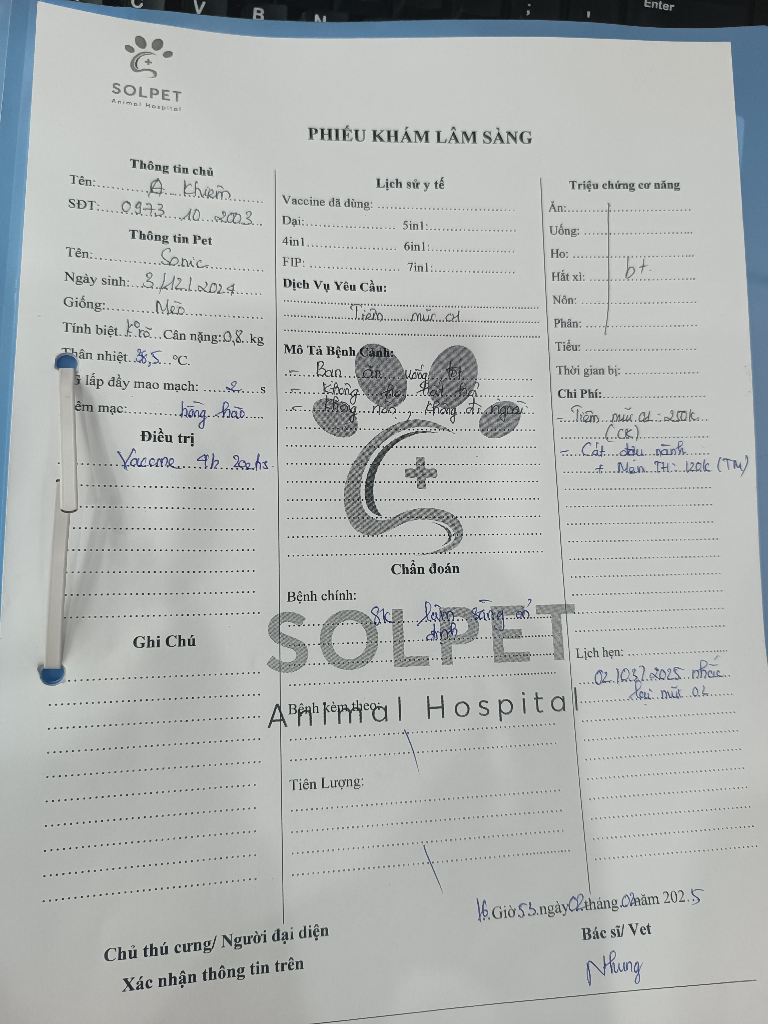 C V B N ; , Enter
SOLPET
Animal Hospital
PHIẾU KHÁM LÂM SÀNG
Thông tin chủ
Tên: A Khiêm
SĐT: 0973 10 2003
Thông tin Pet
Tên: Sonic
Ngày sinh: 3/12/2024
Giống: Mèo
Tính biệt: ko rõ Cân nặng: 0,8 kg
Thân nhiệt 38,5 °C.
lấp đầy mao mạch: 2 s
êm mạc: hồng hào
Điều trị
Vaccine 4b zoetis
Ghi Chú
Lịch sử y tế
Vaccine đã dùng:
Dại: 5in1:
4in1 6in1:
FIP: 7in1:
Dịch Vụ Yêu Cầu:
Tiêm mũi 01
Mô Tả Bệnh Cảnh:
- Ban ăn uống tốt
- Không hắt hơi
- Không nôn, không đi ngoài
Chẩn đoán
Bệnh chính:
SK lâm sàng ổn
định
SOLPET
Animal Hospital
Bệnh kèm theo:
Tiên Lượng:
Triệu chứng cơ năng
Ăn:
Uống:
Ho:
Hắt xì: bt
Nôn:
Phân:
Tiểu:
Thời gian bị:
Chi Phí:
- Tiêm mũi 01: 250k
(CK)
- Cát đậu nành
+ Men TH: 120k (TM)
Lịch hẹn:
02/03/2025 nhắc
lại mũi 02
16 Giờ 53 ngày 02 tháng 02 năm 2025
Bác sĩ/ Vet
Nhung
Chủ thú cưng/ Người đại diện
Xác nhận thông tin trên